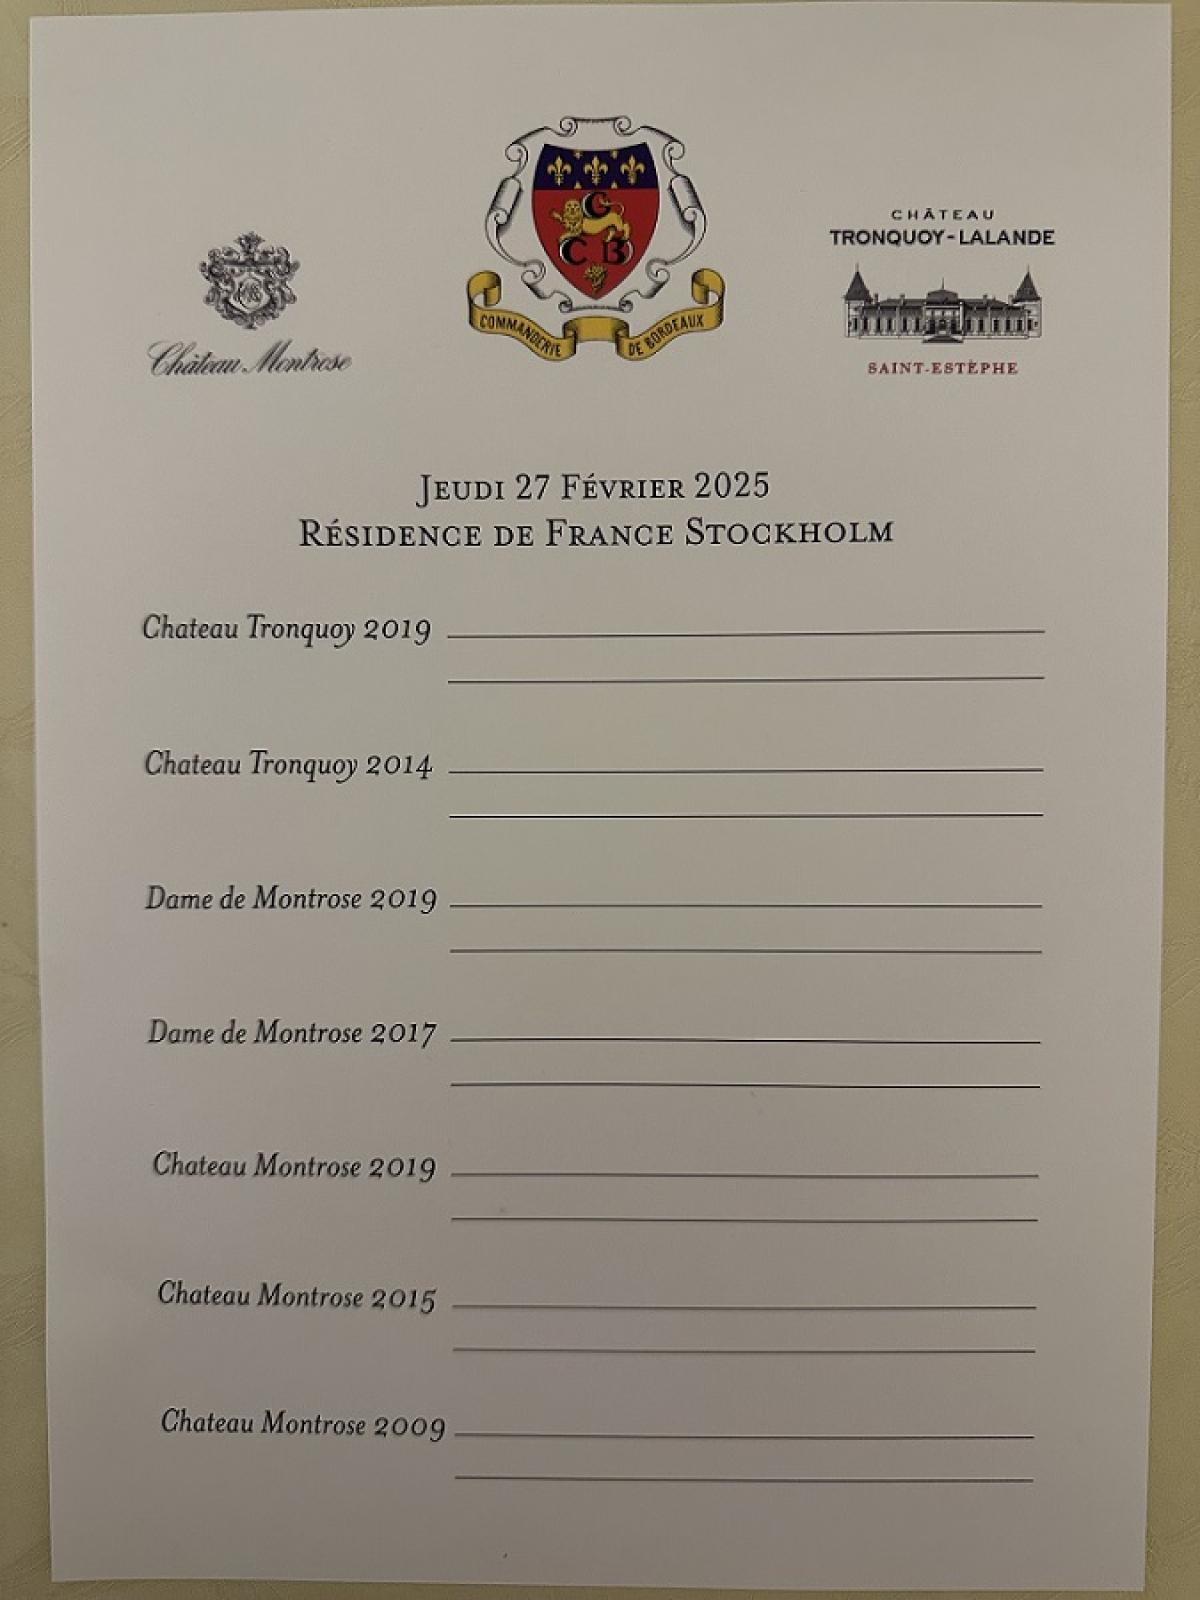 CHÂTEAU
TRONQUOY-LALANDE
G
C B
COMMANDERIE DE BORDEAUX
Château Montrose
SAINT-ESTÈPHE
JEUDI 27 FÉVRIER 2025
RÉSIDENCE DE FRANCE STOCKHOLM
Chateau Tronquoy 2019
Chateau Tronquoy 2014
Dame de Montrose 2019
Dame de Montrose 2017
Chateau Montrose 2019
Chateau Montrose 2015
Chateau Montrose 2009